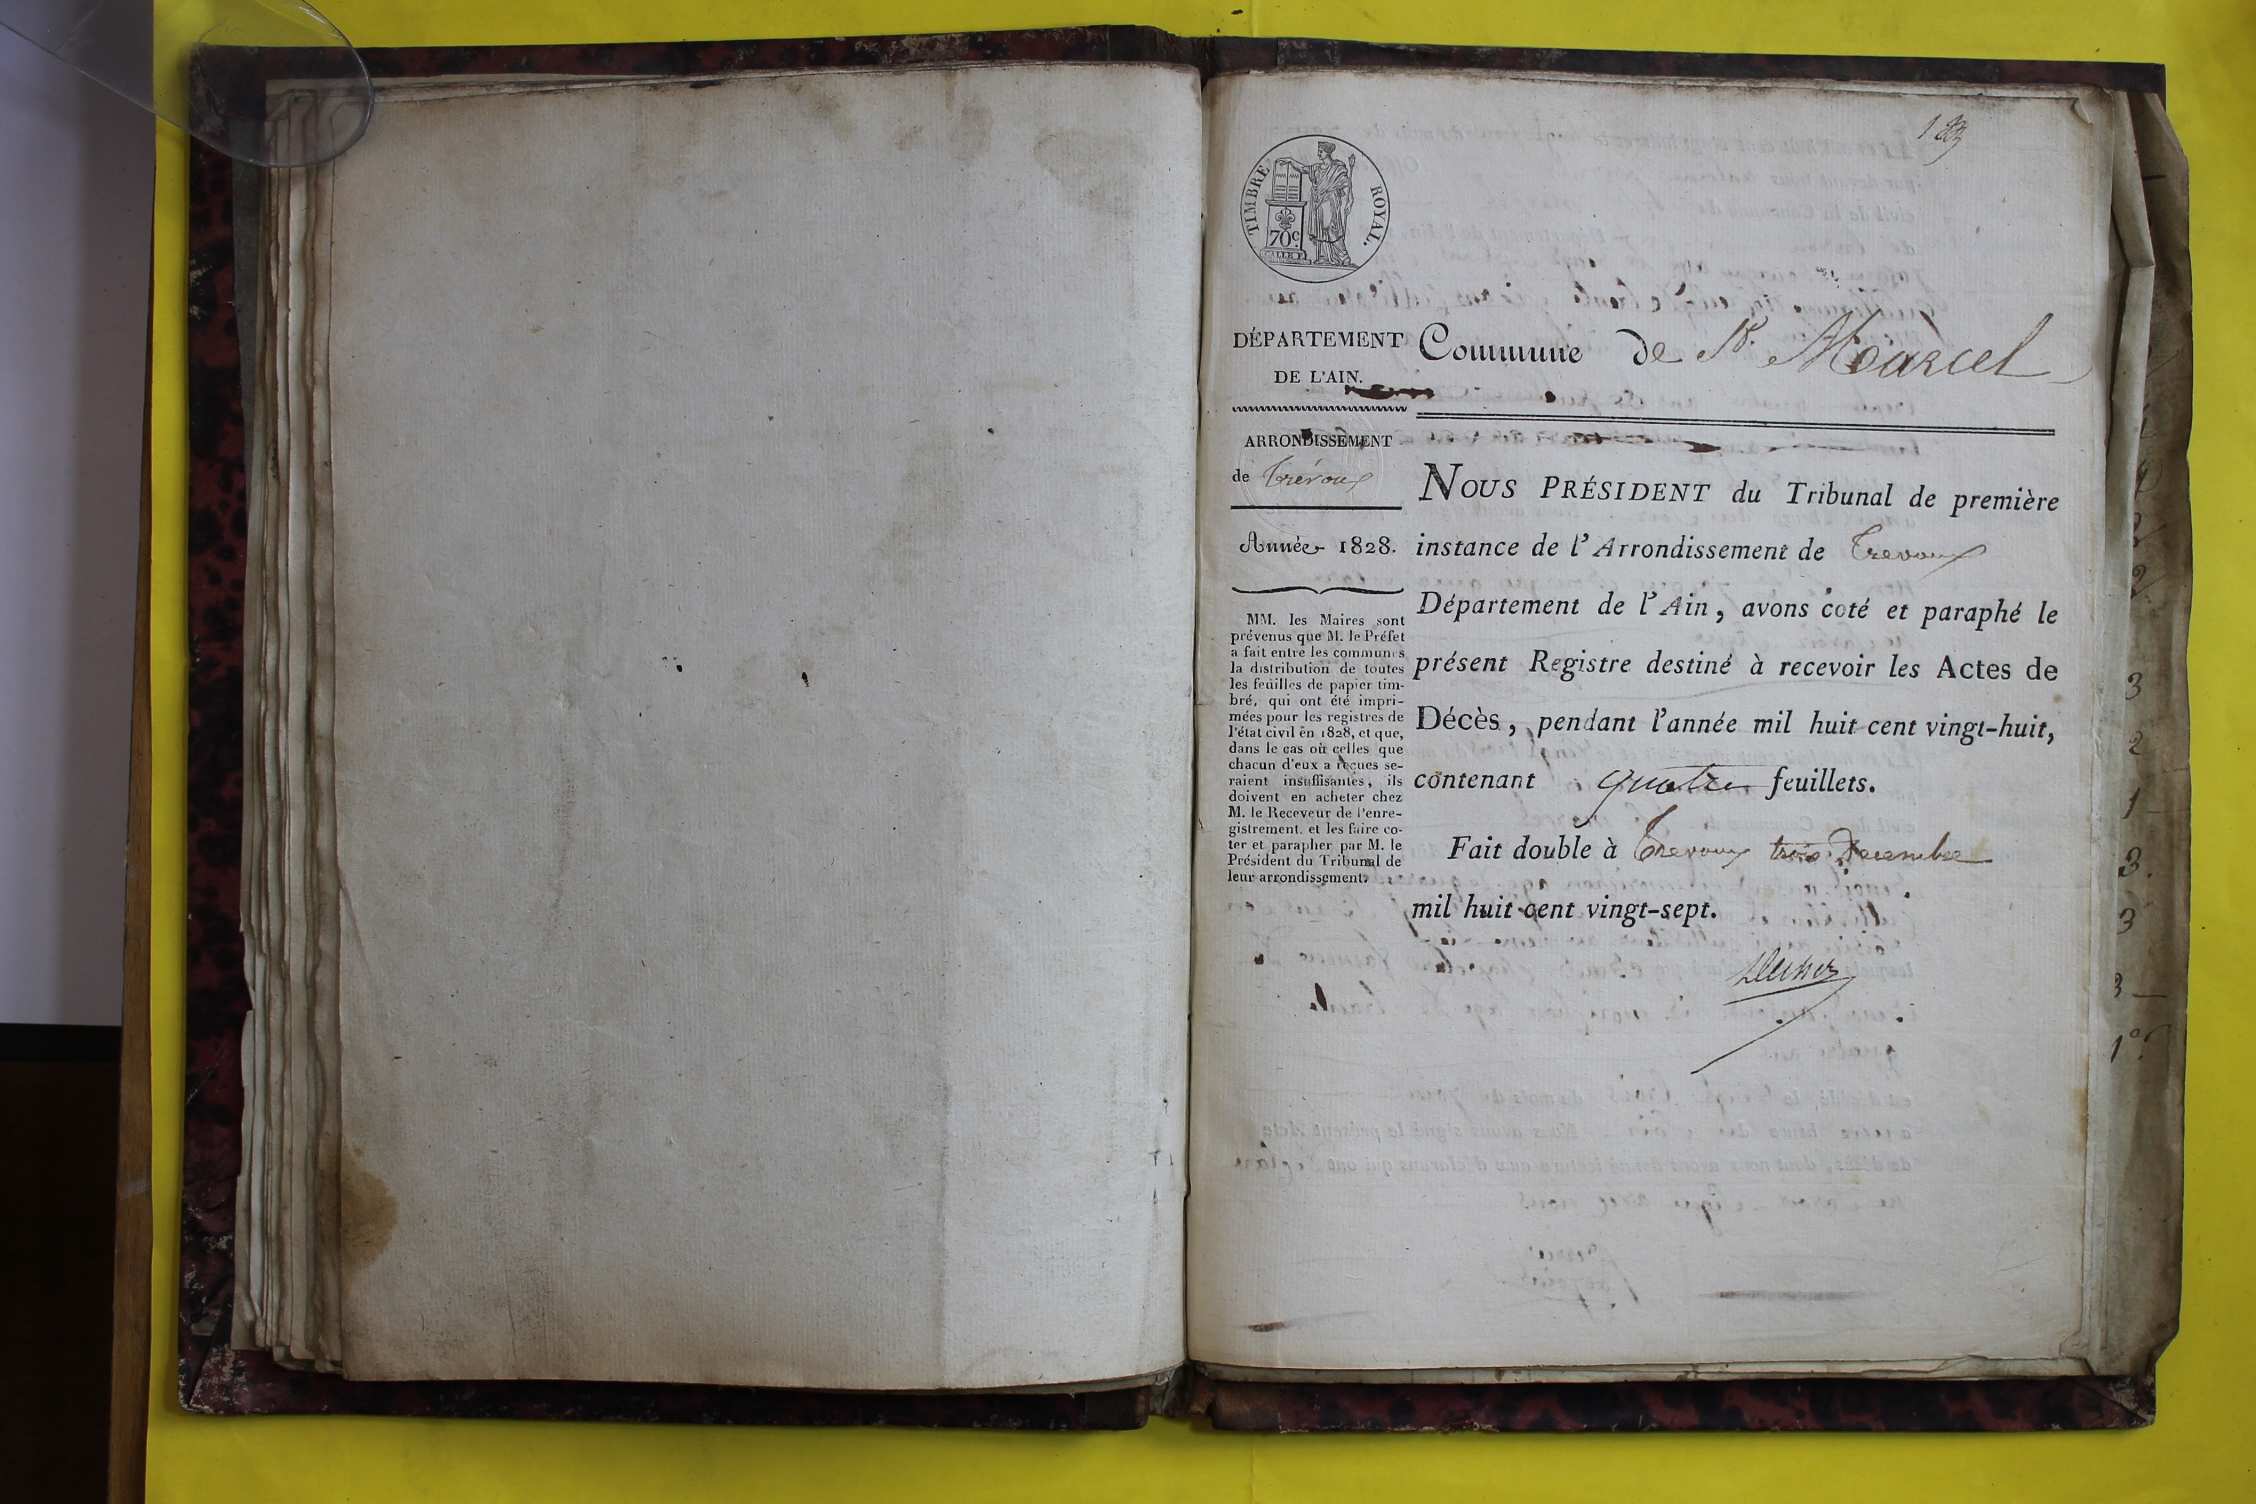 TIMBRE ROYAL.
70c
DÉPARTEMENT
DE L'AIN.
Commune de St. Marcel
ARRONDISSEMENT
de Trévoux
Année 1828.
MM. les Maires sont
prévenus que M. le Préfet
a fait entre les communes
la distribution de toutes
les feuilles de papier tim-
bré, qui ont été impri-
mées pour les registres de
l'état civil en 1828, et que,
dans le cas où celles que
chacun d'eux a reçues se-
raient insuffisantes, ils
doivent en acheter chez
M. le Receveur de l'enre-
gistrement, et les faire co-
ter et parapher par M. le
Président du Tribunal de
leur arrondissement.
NOUS PRÉSIDENT du Tribunal de première
instance de l'Arrondissement de Trevoux
Département de l'Ain, avons coté et paraphé le
présent Registre destiné à recevoir les Actes de
Décès, pendant l'année mil huit cent vingt-huit,
contenant quatre feuillets.
Fait double à Trevoux trois Decembre
mil huit cent vingt-sept.
3
2
1
3.
3
3
1